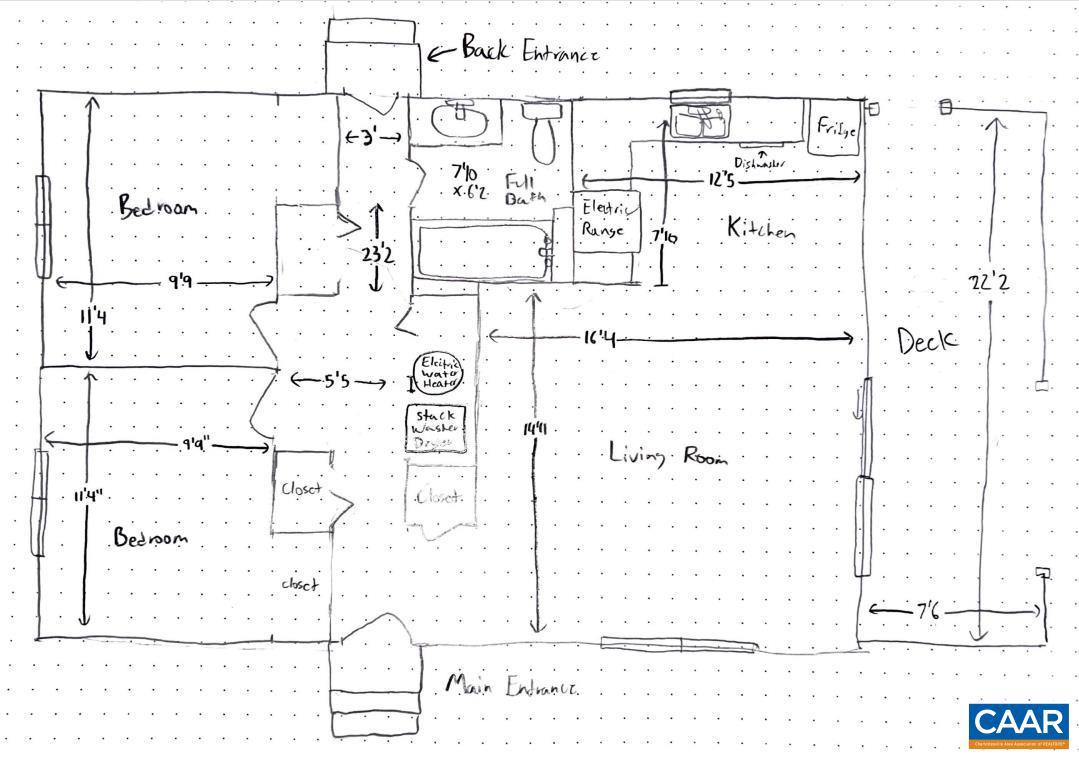 Back Entrance
3'
7'10
x 6'2
Full
Bath
Dishwasher
Fridge
12'5
Bedroom
Electric
Range
7'10
Kitchen
23'2
9'9
22'2
11'4
16'4
Deck
5'5
Electric
Water
Heater
Stack
Washer
Dryer
14'11
9'9"
Living Room
11'4"
Closet
Closet
Bedroom
closet
7'6
Main Entrance
CAAR
Charlottesville Area Association of REALTORS®